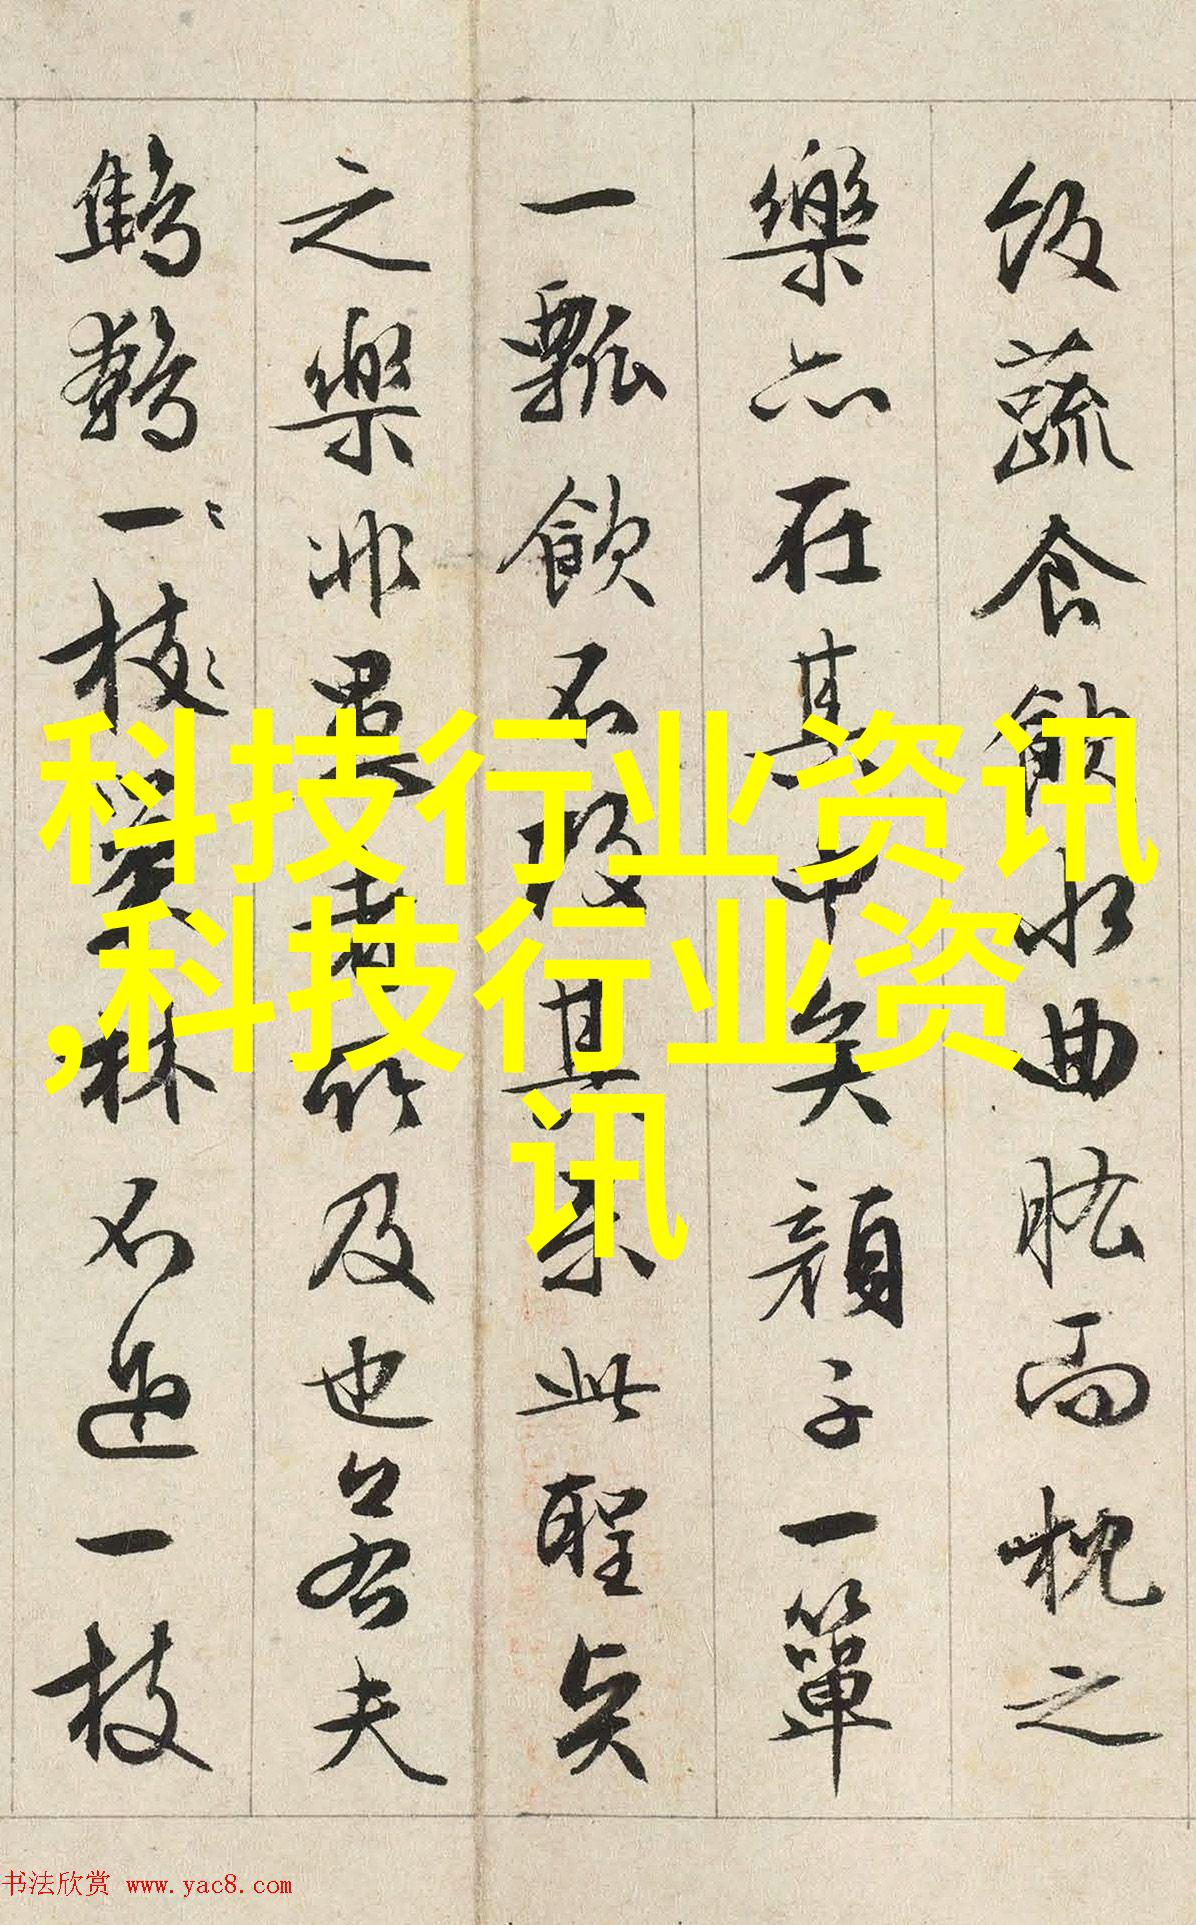 饭蔬食飲水曲肱而枕之
樂亦在其中矣顔子一簞
一瓢飲不改其樂此聖贤
之樂非愚者所及也若夫
鷦鷯一枝巢林不過一枝
科技行业资讯
,科技行业资
讯
书法欣赏 www.yac8.com